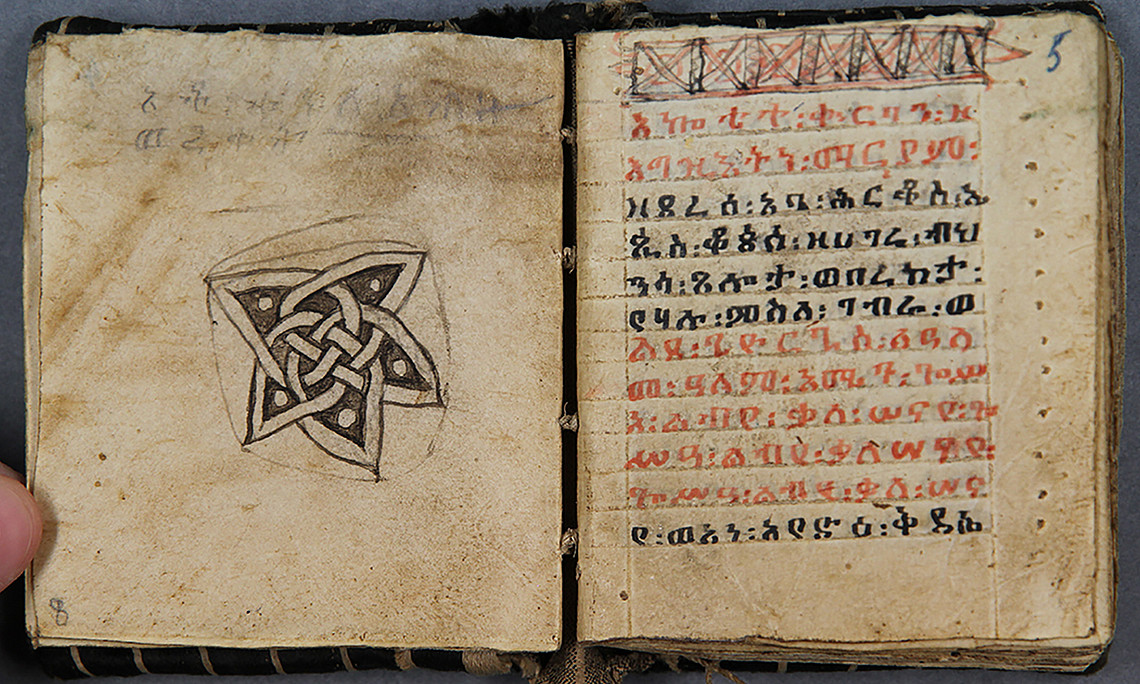 8
5
አኰቴተ፡ቍርባን፡ዘ
እግዝእትነ፡ማርያም፡
ዘደረሰ፡አባ፡ሕርቆስ፡ኤ
ጲስ፡ቆጶስ፡ዘሀገረ፡ብህ
ንሳ፡ጸሎታ፡ወበረከታ፡
የሃሉ፡ምስለ፡ገብራ፡ወ
ልደ፡ጊዮርጊስ፡ለዓለ
መ፡ዓለም፡አሜን፡ጐሥ
አ፡ልብየ፡ቃለ፡ሠናየ፡ጐ
ሥዓ፡ልብየ፡ቃለ፡ሠናየ፡
ጐሥዓ፡ልብየ፡ቃለ፡ሠና
የ፡ወአነ፡አየድዕ፡ቅዳሴ